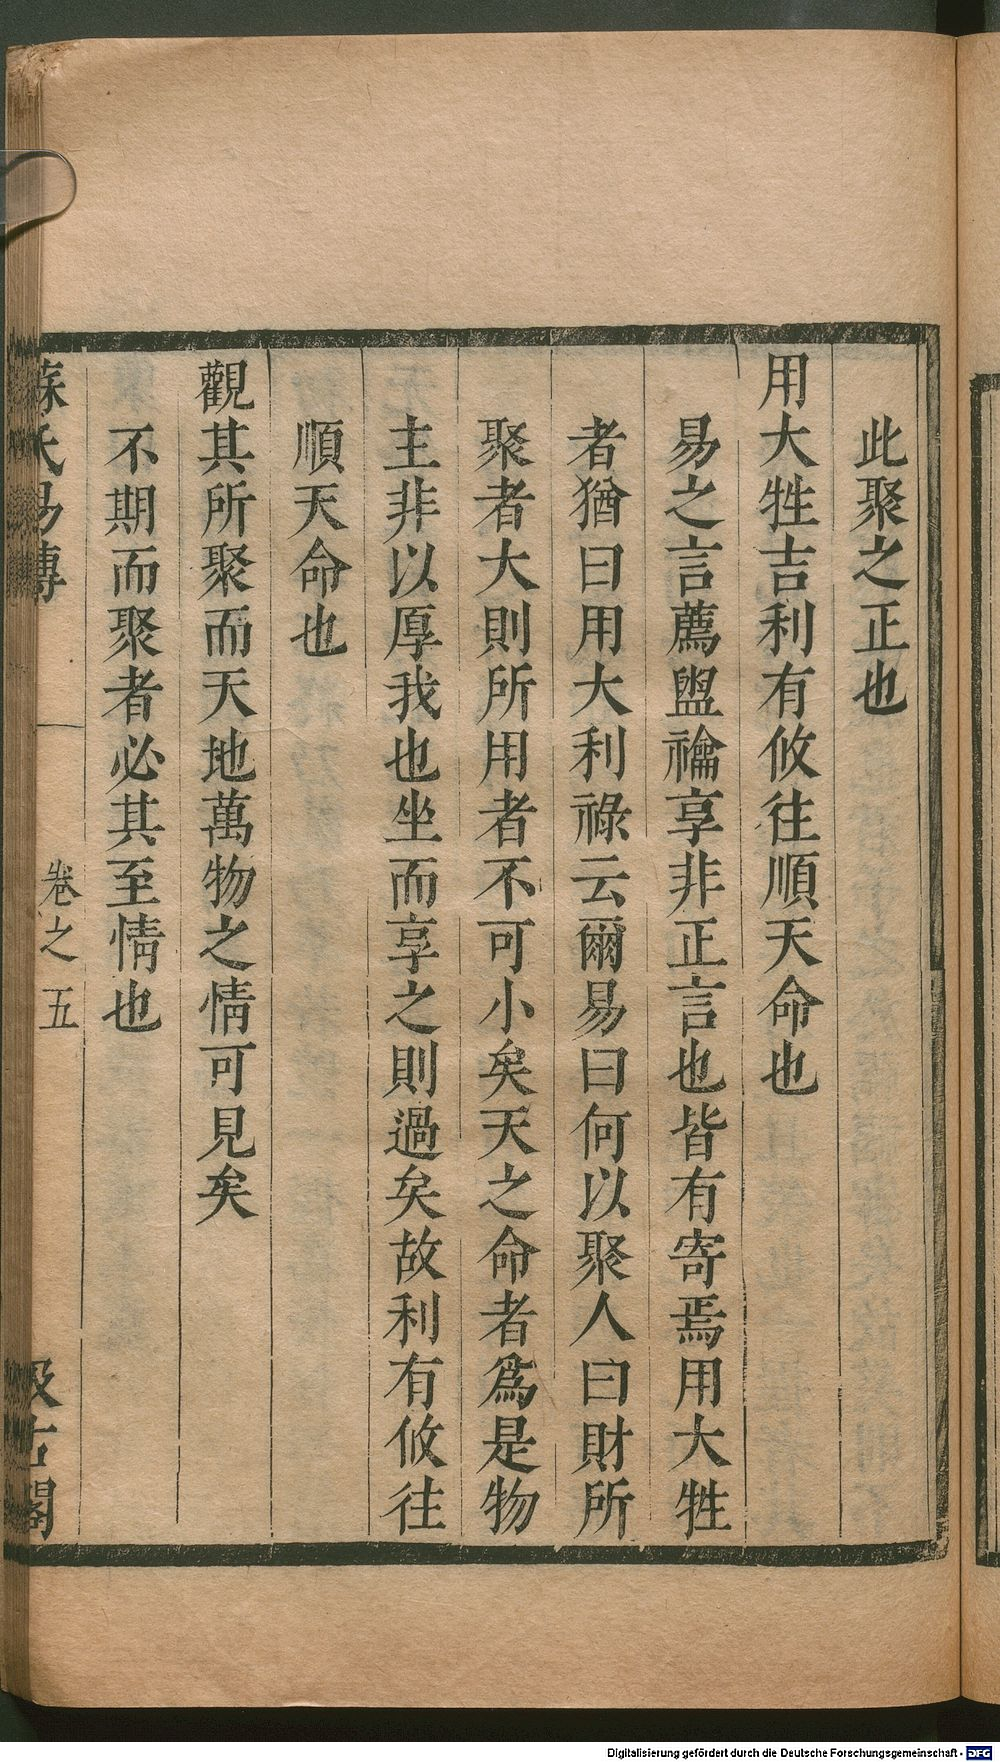 此聚之正也
用大牲吉利有攸往順天命也
易之言薦盥禴享非正言也皆有寄焉用大牲
者猶曰用大利祿云爾易曰何以聚人曰財所
聚者大則所用者不可小矣天之命者爲是物
主非以厚我也坐而享之則過矣故利有攸往
順天命也
觀其所聚而天地萬物之情可見矣
不期而聚者必其至情也
蘇氏易傳 卷之五 汲古閣
Digitalisierung gefördert durch die Deutsche Forschungsgemeinschaft - DFG